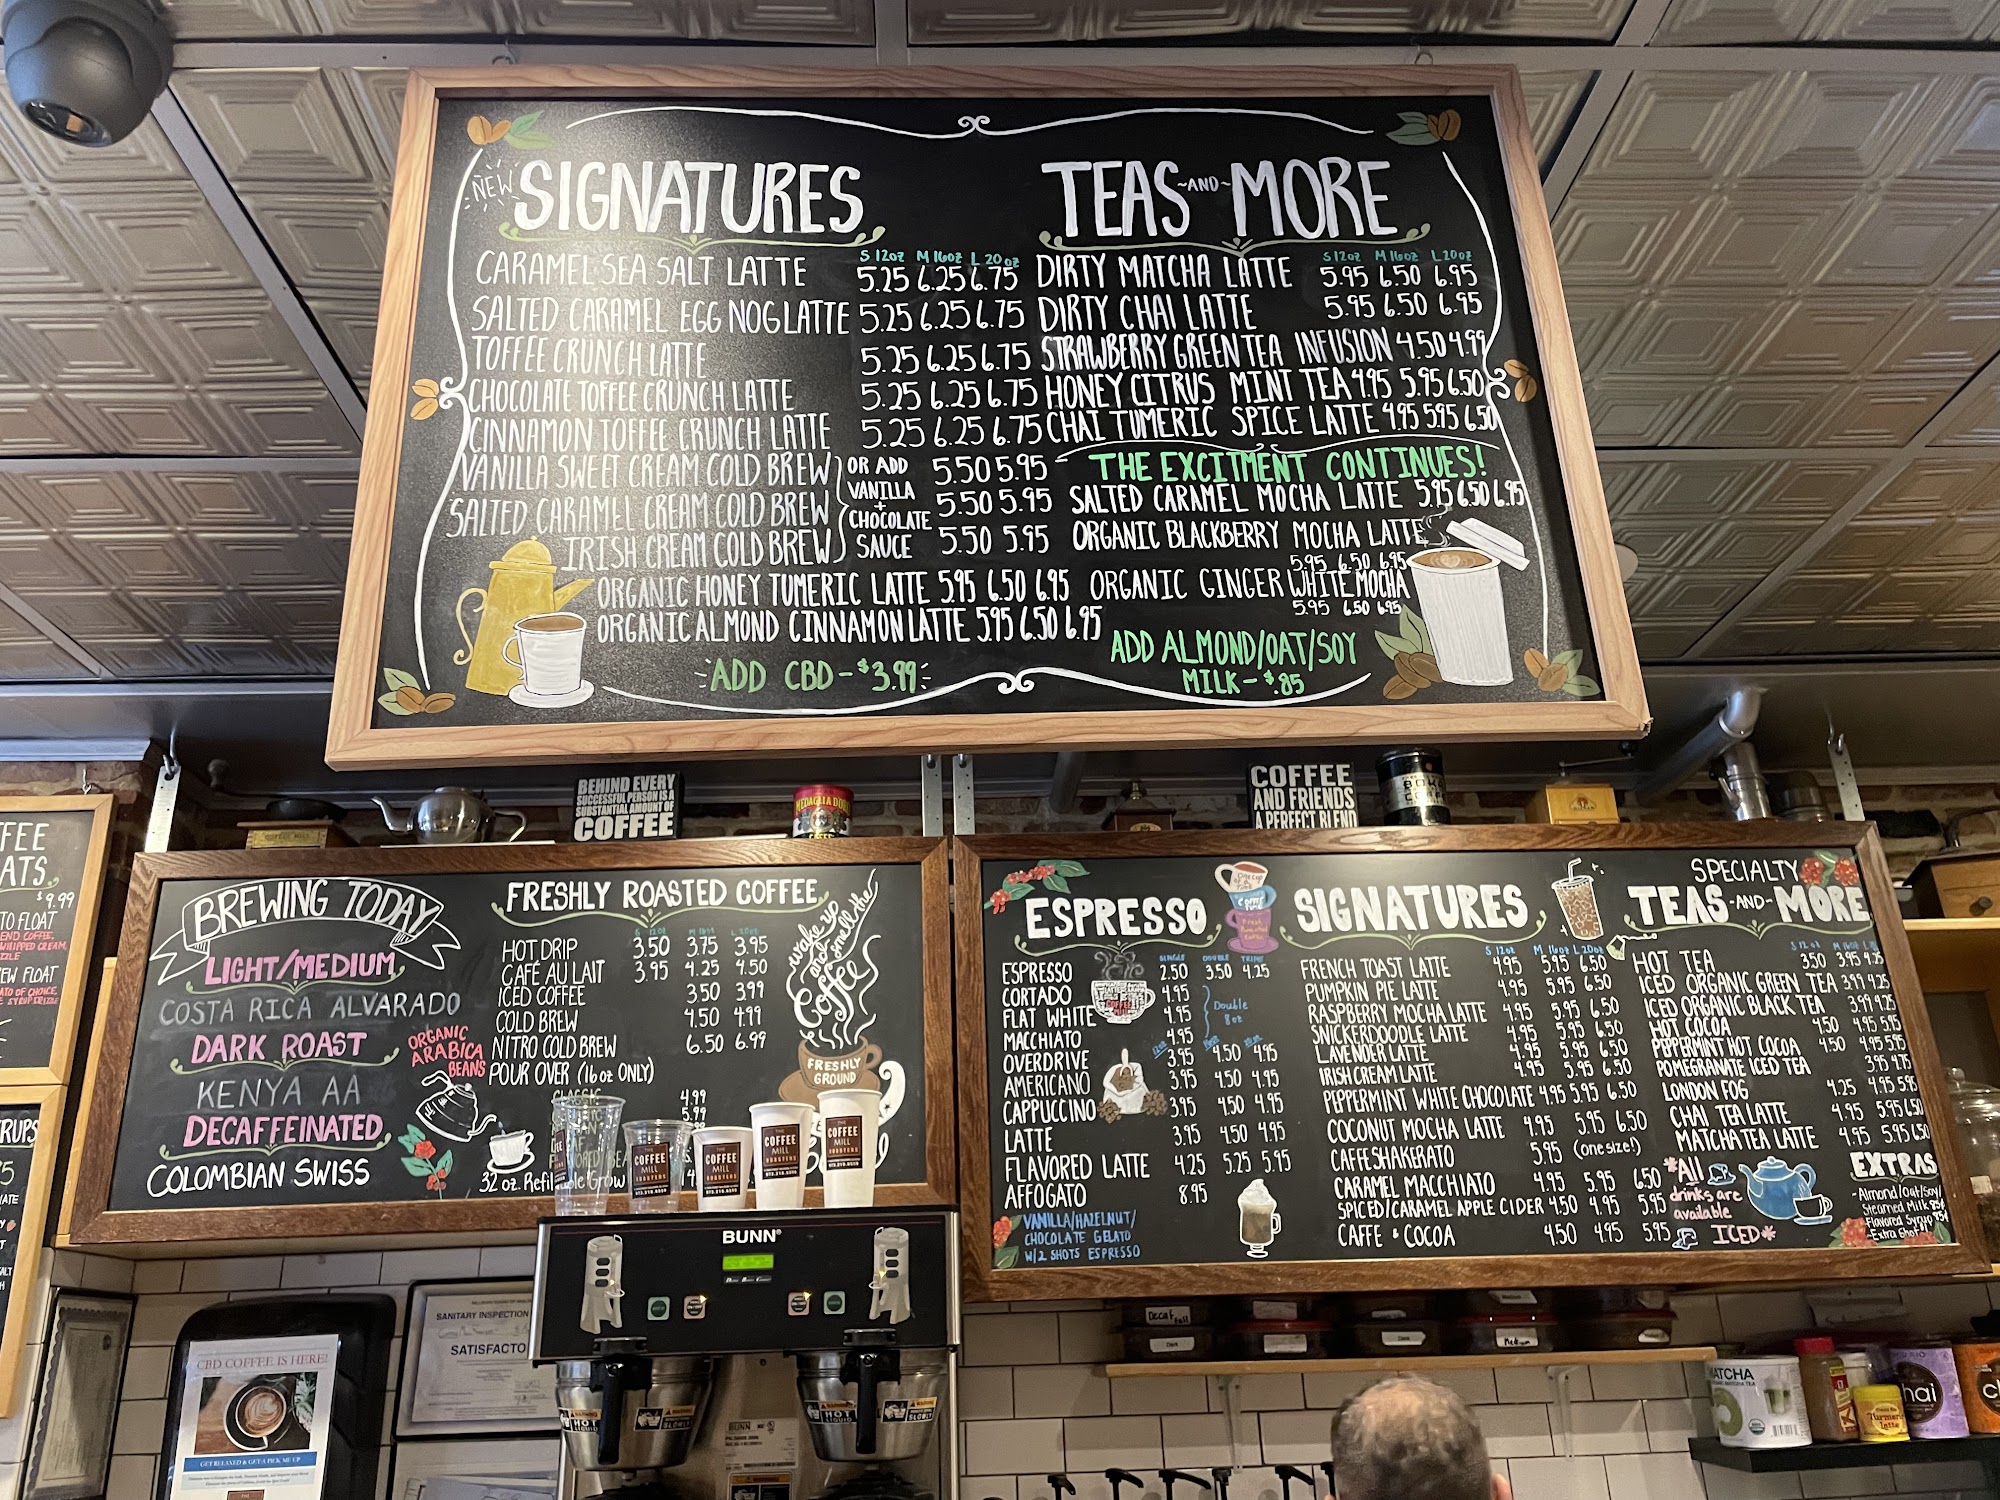 NEW SIGNATURES
S 12oz M 16oz L 20oz
CARAMEL SEA SALT LATTE 5.25 6.25 6.75
SALTED CARAMEL EGG NOG LATTE 5.25 6.25 6.75
TOFFEE CRUNCH LATTE 5.25 6.25 6.75
CHOCOLATE TOFFEE CRUNCH LATTE 5.25 6.25 6.75
CINNAMON TOFFEE CRUNCH LATTE 5.25 6.25 6.75
VANILLA SWEET CREAM COLD BREW 5.50 5.95
SALTED CARAMEL CREAM COLD BREW 5.50 5.95
IRISH CREAM COLD BREW 5.50 5.95
OR ADD
VANILLA
+
CHOCOLATE
SAUCE
ORGANIC HONEY TUMERIC LATTE 5.95 6.50 6.95
ORGANIC ALMOND CINNAMON LATTE 5.95 6.50 6.95
ADD CBD - $3.99
TEAS ~AND~ MORE
S 12oz M 16oz L 20oz
DIRTY MATCHA LATTE 5.95 6.50 6.95
DIRTY CHAI LATTE 5.95 6.50 6.95
STRAWBERRY GREEN TEA INFUSION 4.50 4.99
HONEY CITRUS MINT TEA 4.95 5.95 6.50
CHAI TUMERIC SPICE LATTE 4.95 5.95 6.50
THE EXCITMENT CONTINUES!
SALTED CARAMEL MOCHA LATTE 5.95 6.50 6.95
ORGANIC BLACKBERRY MOCHA LATTE
5.95 6.50 6.95
ORGANIC GINGER WHITE MOCHA
5.95 6.50 6.95
ADD ALMOND/OAT/SOY
MILK - $.85
BEHIND EVERY
SUCCESSFUL PERSON IS A
SUBSTANTIAL AMOUNT OF
COFFEE
MEDAGLIA D'ORO
COFFEE
AND FRIENDS
A PERFECT BLEND
FEE
ATS
$9.99
TO FLOAT
WHIPPED CREAM
EW FLOAT
RUPS
BREWING TODAY
LIGHT/MEDIUM
COSTA RICA ALVARADO
DARK ROAST
KENYA AA
DECAFFEINATED
COLOMBIAN SWISS
ORGANIC
ARABICA
BEANS
FRESHLY ROASTED COFFEE
S 12oz M 16oz L 20oz
HOT DRIP 3.50 3.75 3.95
CAFÉ AU LAIT 3.95 4.25 4.50
ICED COFFEE 3.50 3.99
COLD BREW 4.50 4.99
NITRO COLD BREW 6.50 6.99
POUR OVER (16oz ONLY)
CLASSIC 4.99
5.99
32 oz. Refillable Grow
wake up
and
smell the
Coffee
FRESHLY
GROUND
THE
COFFEE
MILL
ROASTERS
ESPRESSO
SINGLE DOUBLE TRIPLE
ESPRESSO 2.50 3.50 4.25
CORTADO 4.95
FLAT WHITE 4.95
MACCHIATO 4.95
Double
8oz
OVERDRIVE 3.95 4.50 4.95
AMERICANO 3.95 4.50 4.95
CAPPUCCINO 3.95 4.50 4.95
LATTE 3.95 4.50 4.95
FLAVORED LATTE 4.25 5.25 5.95
AFFOGATO 8.95
VANILLA/HAZELNUT/
CHOCOLATE GELATO
W/2 SHOTS ESPRESSO
SIGNATURES
S 12oz M 16oz L 20oz
FRENCH TOAST LATTE 4.95 5.95 6.50
PUMPKIN PIE LATTE 4.95 5.95 6.50
RASPBERRY MOCHA LATTE 4.95 5.95 6.50
SNICKERDOODLE LATTE 4.95 5.95 6.50
LAVENDER LATTE 4.95 5.95 6.50
IRISH CREAM LATTE 4.95 5.95 6.50
PEPPERMINT WHITE CHOCOLATE 4.95 5.95 6.50
COCONUT MOCHA LATTE 4.95 5.95 6.50
CAFFE SHAKERATO 5.95 (one size!)
CARAMEL MACCHIATO 4.95 5.95 6.50
SPICED/CARAMEL APPLE CIDER 4.50 4.95 5.95
CAFFE & COCOA 4.50 4.95 5.95
SPECIALTY
TEAS -AND- MORE
HOT TEA 3.50 3.95 4.25
ICED ORGANIC GREEN TEA 3.99 4.25
ICED ORGANIC BLACK TEA 3.99 4.25
HOT COCOA 4.50 4.95 5.95
PEPPERMINT HOT COCOA 4.50 4.95 5.95
POMEGRANATE ICED TEA 3.95 4.75
LONDON FOG 4.25 4.95 5.95
CHAI TEA LATTE 4.95 5.95 6.50
MATCHA TEA LATTE 4.95 5.95 6.50
*All
drinks are
available
ICED*
EXTRAS
-Almond/Oat/Soy/
Steamed Milk 85¢
Flavored Syrup 85¢
-Extra Shot
BUNN
CBD COFFEE IS HERE!
GET RELAXED & GET A PICK ME UP
SANITARY INSPECTION
SATISFACTO
HOT
LIQUID
Decaf
Dark
Medium
MATCHA
chai
Turmeric
latte